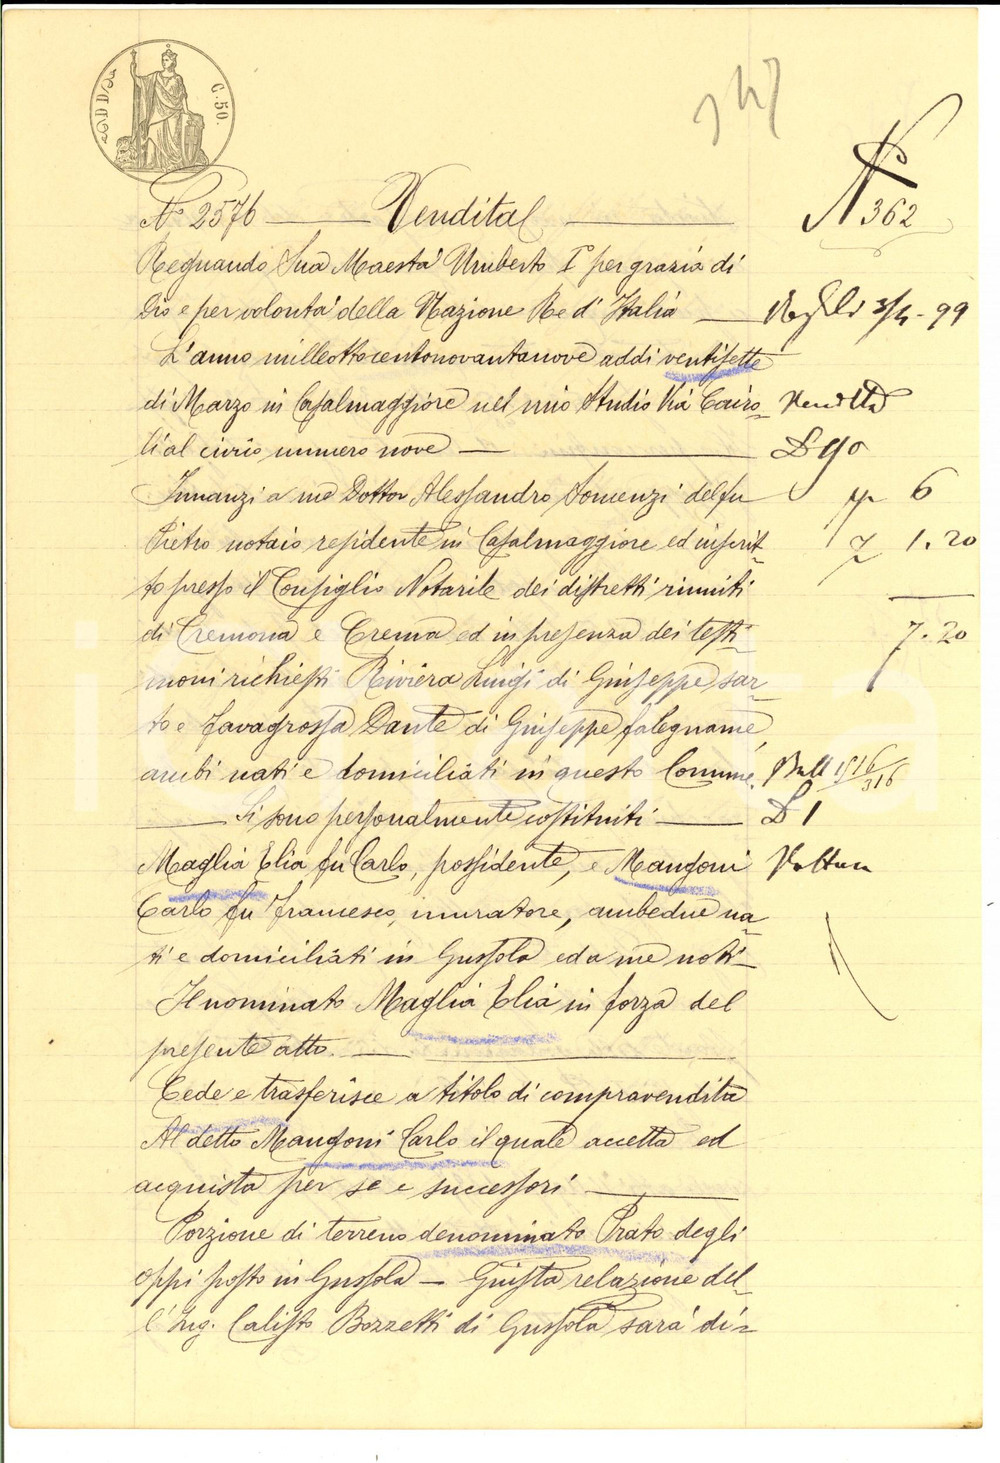 C. 50.
N° 2576 Vendita
N 362
Regnando Sua Maestà Umberto I° per grazia di
Dio e per volontà della Nazione Re d'Italia
3/4-99
L'anno milleottocentonovantanove addì ventisette
di Marzo in Casalmaggiore nel mio Studio Via Cairo-
Vendita
li al civico numero nove
90
Innanzi a me Dottor Alessandro Somenzi del fu
6
Pietro notaio residente in Casalmaggiore ed inscrit-
1.20
to presso il Consiglio Notarile dei distretti riuniti
di Cremona e Crema ed in presenza dei testi-
7.20
moni richiesti Riviera Luigi di Giuseppe, sar-
to e Favagrossa Dante di Giuseppe falegname,
ambi nati e domiciliati in questo Comune.
Si sono personalmente costituiti
Maglia Elia fu Carlo, possidente, e Mangoni
Voltura
Carlo fu Francesco, muratore, ambedue na-
ti e domiciliati in Gussola ed a me noti-
Il nominato Maglia Elia in forza del
presente atto.
Cede e trasferisce a titolo di compravendita
Al detto Mangoni Carlo il quale accetta ed
acquista per se e successori
Porzione di terreno denominato Prato degli
oppi posto in Gussola – Giusta relazione del-
l'Ing. Calisto Bozzetti di Gussola sarà di=